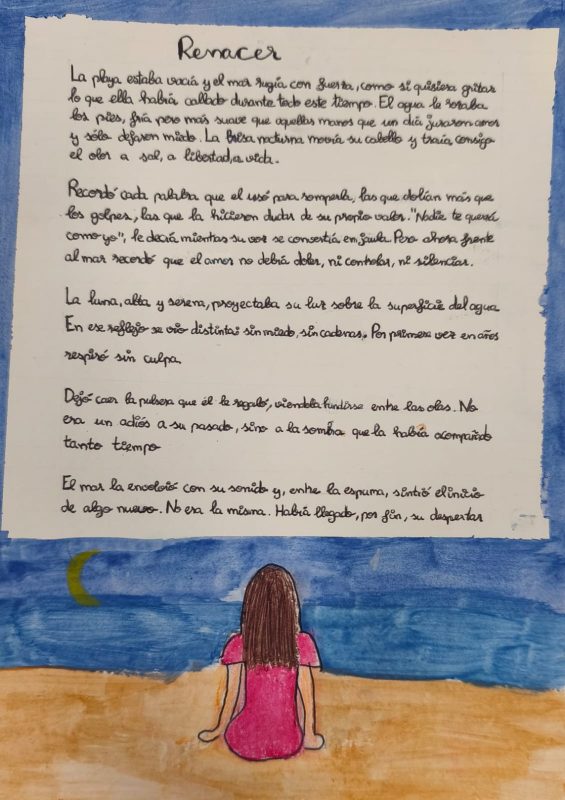 Renacer
La playa estaba vacía y el mar rugía con fuerza, como si quisiera gritar
lo que ella había callado durante todo este tiempo. El agua le rozaba
los pies, fría pero más suave que aquellas manos que un día juraron amor
y sólo dejaron miedo. La brisa nocturna movía su cabello y traía consigo
el olor a sal, a libertad, a vida.
Recordó cada palabra que el usó para romperla, las que dolían más que
los golpes, las que la hicieron dudar de su propio valor. "Nadie te querrá
como yo", le decía mientas su voz se convertía en jaula. Pero ahora frente
al mar recordó que el amor no debía doler, ni controlar, ni silenciar.
La luna, alta y serena, proyectaba su luz sobre la superficie del agua
En ese reflejo se vio distinta: sin miedo, sin cadenas. Por primera vez en años
respiró sin culpa.
Dejó caer la pulsera que él le regaló, viendola hundirse entre las olas. No
era un adiós a su pasado, sino a la sombra que la había acompañado
tanto tiempo
El mar la envolvió con su sonido y, entre la espuma, sintió el inicio
de algo nuevo. No era la misma. Había llegado, por fin, su despertar